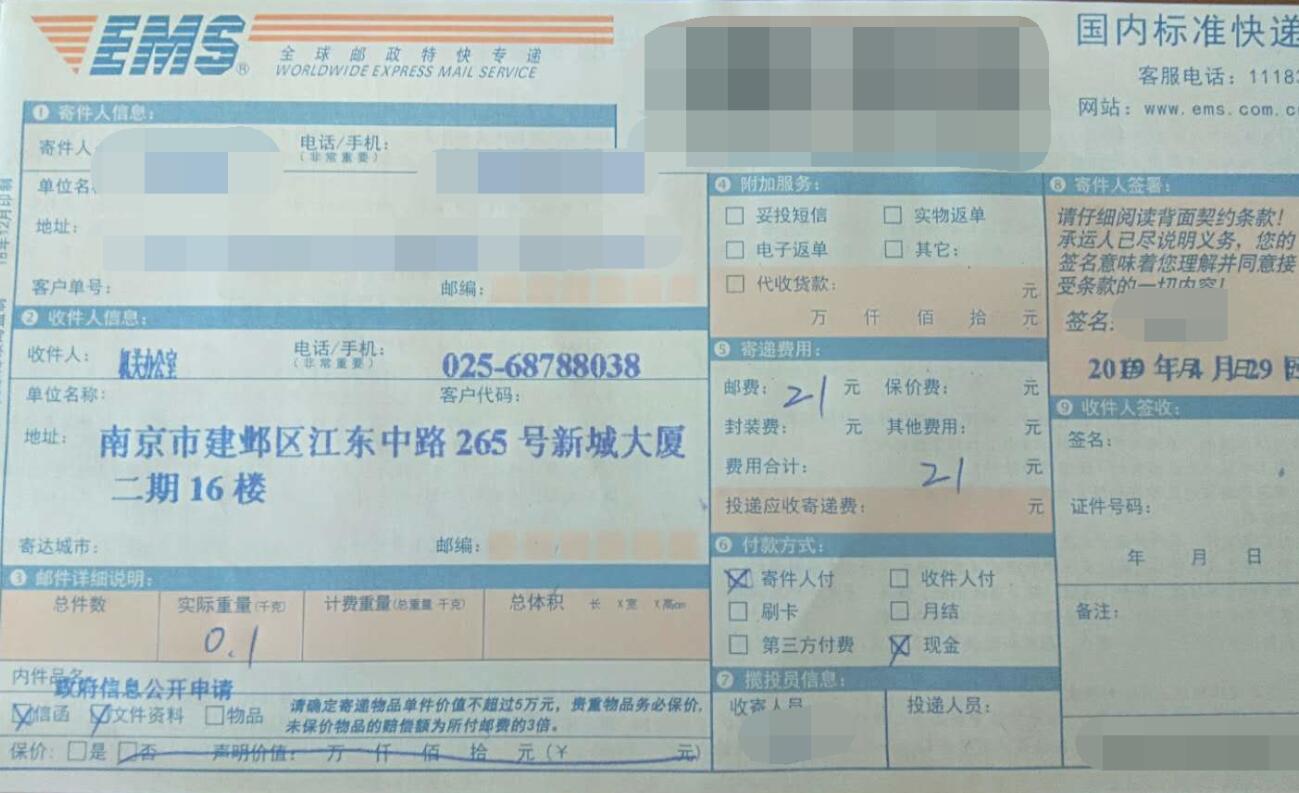 EMS®
全球邮政特快专递
WORLDWIDE EXPRESS MAIL SERVICE
国内标准快递
客服电话：1118
网站：www.ems.com.c
① 寄件人信息：
寄件人
电话/手机：
（非常重要）
单位名
地址：
客户单号：
邮编：
② 收件人信息：
收件人： 机关办公室
电话/手机：
（非常重要）
025-68788038
单位名称：
客户代码：
地址： 南京市建邺区江东中路 265 号新城大厦
二期 16 楼
寄达城市：
邮编：
③ 邮件详细说明：
总件数
实际重量(千克)
计费重量(总重量 千克)
总体积 长 X宽 X高cm
0.1
内件品名
政府信息公开申请
信函 文件资料 物品
请确定寄递物品单件价值不超过5万元，贵重物品务必保价，
未保价物品的赔偿额为所付邮费的3倍。
保价： 是 否 声明价值： 万 仟 佰 拾 元（￥ 元）
④ 附加服务：
妥投短信 实物返单
电子返单 其它：
代收货款： 元
万 仟 佰 拾 元
⑤ 寄递费用：
邮费： 21 元 保价费： 元
封装费： 元 其他费用： 元
费用合计： 21 元
投递应收寄递费： 元
⑥ 付款方式：
寄件人付 收件人付
刷卡 月结
第三方付费 现金
⑦ 揽投员信息：
收寄人员
投递人员：
⑧ 寄件人签署：
请仔细阅读背面契约条款！
承运人已尽说明义务，您的
签名意味着您理解并同意接
受条款的一切内容！
签名：
2019 年 4 月 29
⑨ 收件人签收：
签名：
证件号码：
年 月 日
备注：